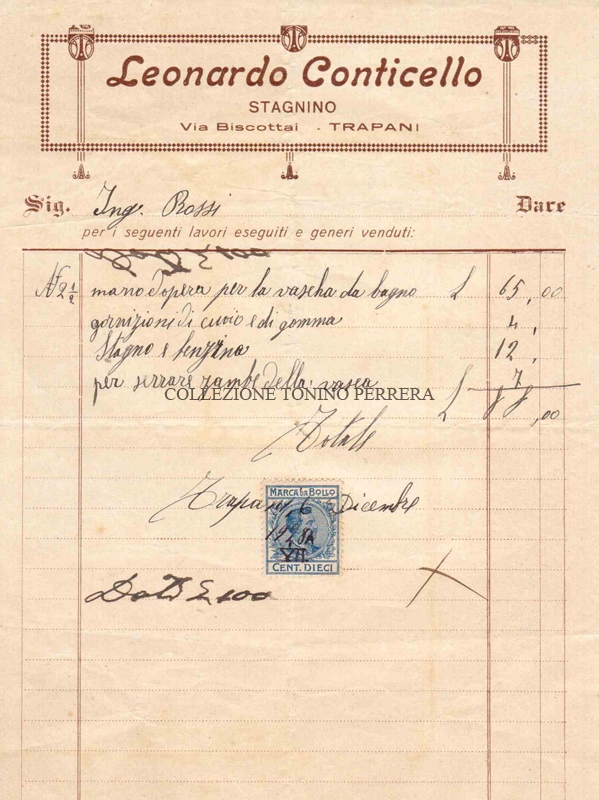 Leonardo Conticello
STAGNINO
Via Biscottai - TRAPANI
Sig. Ing. Rossi Dare
per i seguenti lavori eseguiti e generi venduti:
N 2 1/2 mano d'opera per la vascha da bagno £ 65,00
gornizioni di cuoio e di gomma 4,
Stagno e benzina 12,
per serrare zambe della vasca 7
COLLEZIONE TONINO PERRERA
Totale £ 88,00
MARCA DA BOLLO
Trapani, 6 Dicembre
1928
VII.
CENT. DIECI
Dato £ 100